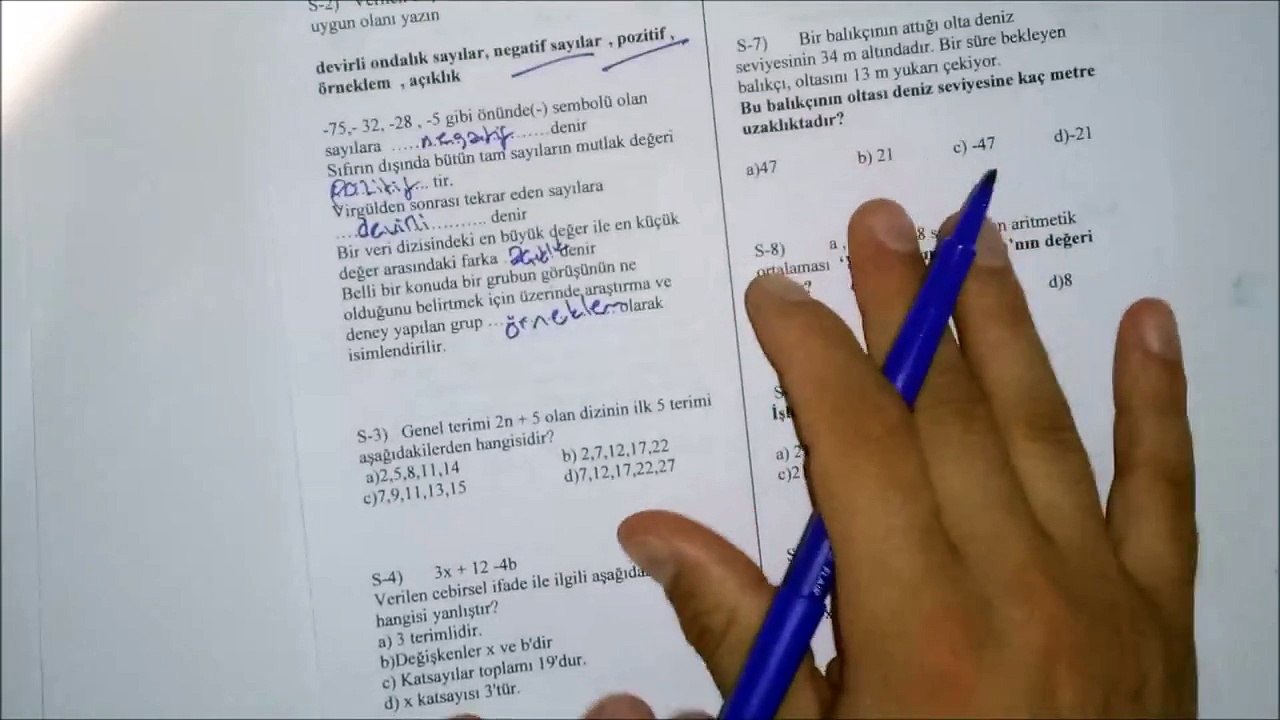 S-2)
uygun olanı yazın
devirli ondalık sayılar, negatif sayılar , pozitif ,
örneklem , açıklık
-75,- 32, -28 , -5 gibi önünde(-) sembolü olan
sayılara .....negatif.......denir
Sıfırın dışında bütün tam sayıların mutlak değeri
pozitif... tir.
Virgülden sonrası tekrar eden sayılara
....devirli.......... denir
Bir veri dizisindeki en büyük değer ile en küçük
değer arasındaki farka açıklık denir
Belli bir konuda bir grubun görüşünün ne
olduğunu belirtmek için üzerinde araştırma ve
deney yapılan grup ...örneklem olarak
isimlendirilir.
S-3) Genel terimi 2n + 5 olan dizinin ilk 5 terimi
aşağıdakilerden hangisidir?
a)2,5,8,11,14 b) 2,7,12,17,22
c)7,9,11,13,15 d)7,12,17,22,27
S-4) 3x + 12 -4b
Verilen cebirsel ifade ile ilgili
hangisi yanlıştır?
a) 3 terimlidir.
b)Değişkenler x ve b'dir
c) Katsayılar toplamı 19'dur.
d) x katsayısı 3'tür.
S-7) Bir balıkçının attığı olta deniz
seviyesinin 34 m altındadır. Bir süre bekleyen
balıkçı, oltasını 13 m yukarı çekiyor.
Bu balıkçının oltası deniz seviyesine kaç metre
uzaklıktadır?
a)47 b) 21 c) -47 d)-21
S-8) a , 8 aritmetik
ortalaması 'nın değeri
d)8
a) 2
c)2
FLAIR